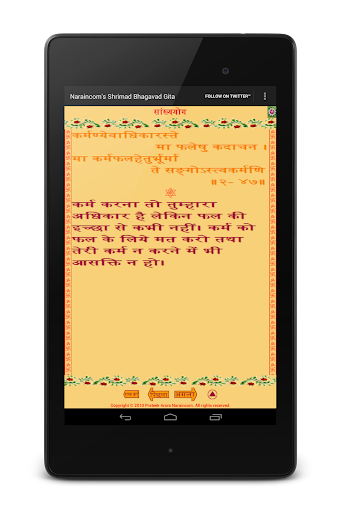 Naraincom's Shrimad Bhagavad Gita FOLLOW ON TWITTER"
सांख्ययोग
कर्मण्येवाधिकारस्ते
मा फलेषु कदाचन ।
मा कर्मफलहेतुर्भूर्मा
ते सङ्गोऽस्त्वकर्मणि
॥२- ४७॥
कर्म करना तो तुम्हारा
अधिकार है लेकिन फल की
इच्छा से कभी नहीं। कर्म को
फल के लिये मत करो तथा
तेरी कर्म न करने में भी
आसक्ति न हो।
पिछला अगला
Copyright © 2013 Prateek Arora Naraincom. All rights reserved.